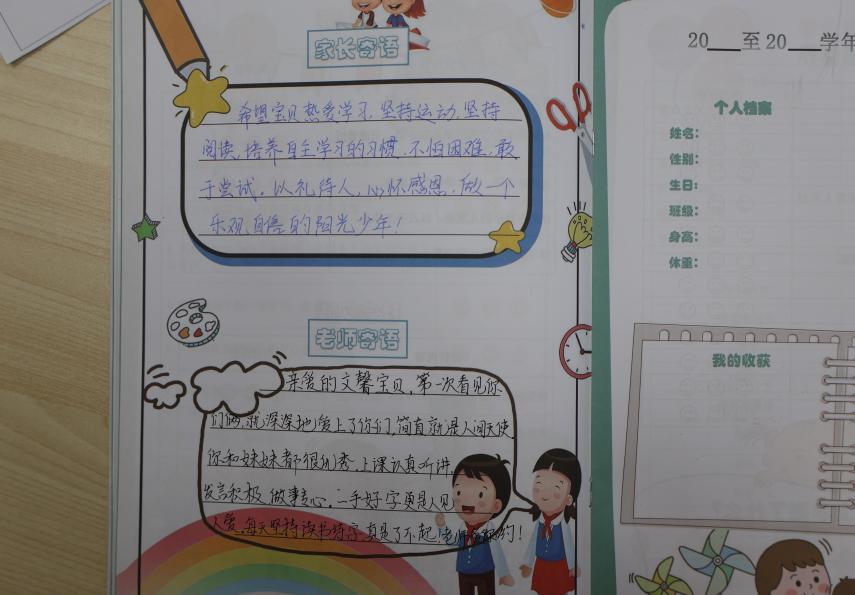 家长寄语
希望宝贝热爱学习,坚持运动,坚持
阅读,培养自主学习的习惯,不怕困难,敢
于尝试。以礼待人,心怀感恩,做一个
乐观自信的阳光少年!
老师寄语
亲爱的文馨宝贝,第一次看见你
们俩,就深深地爱上了你们,简直就是人间天使
你和妹妹都很优秀,上课认真听讲,
发言积极,做事专心,一手好字真是人见
人爱,每天坚持读书练字,真是了不起!老师
20 至20 学年
个人档案
姓名:
性别:
生日:
班级:
身高:
体重:
我的收获